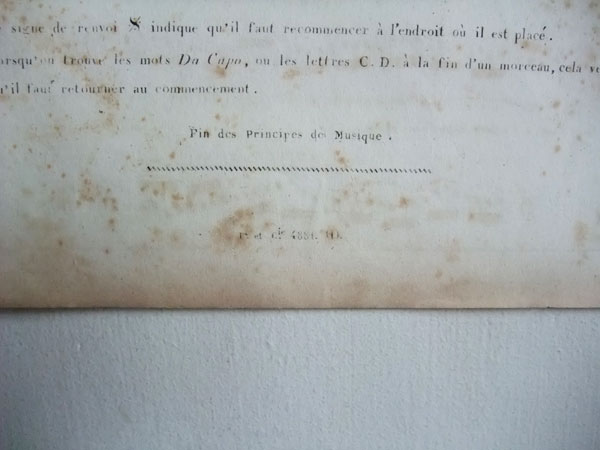 signe de renvoi 𝄋 indique qu'il faut recommencer à l'endroit où il est placé.
orsqu'on trouve les mots Da Capo, ou les lettres C. D. à la fin d'un morceau, cela ve
u'il faut retourner au commencement.
Fin des Principes de Musique.
et Cie 4881.